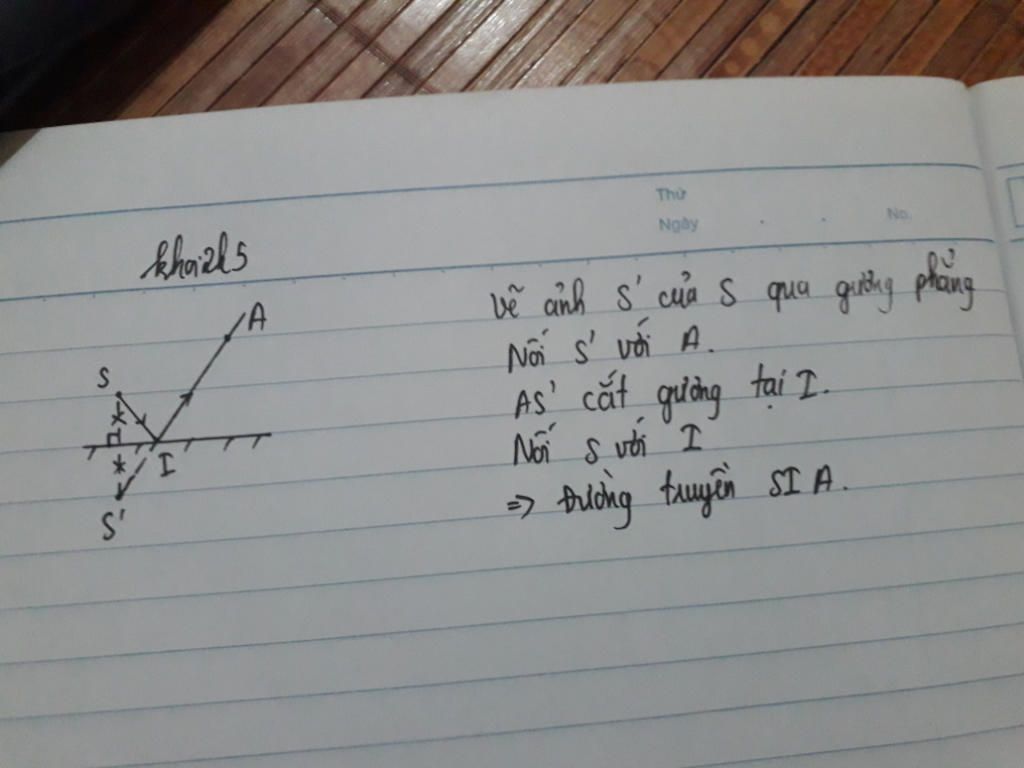 Thứ
Ngày . . No.
khai2k5
A
S
I
S'
Vẽ ảnh S' của S qua gương phẳng
Nối S' với A.
AS' cắt gương tại I.
Nối S với I
=> đường truyền SIA.